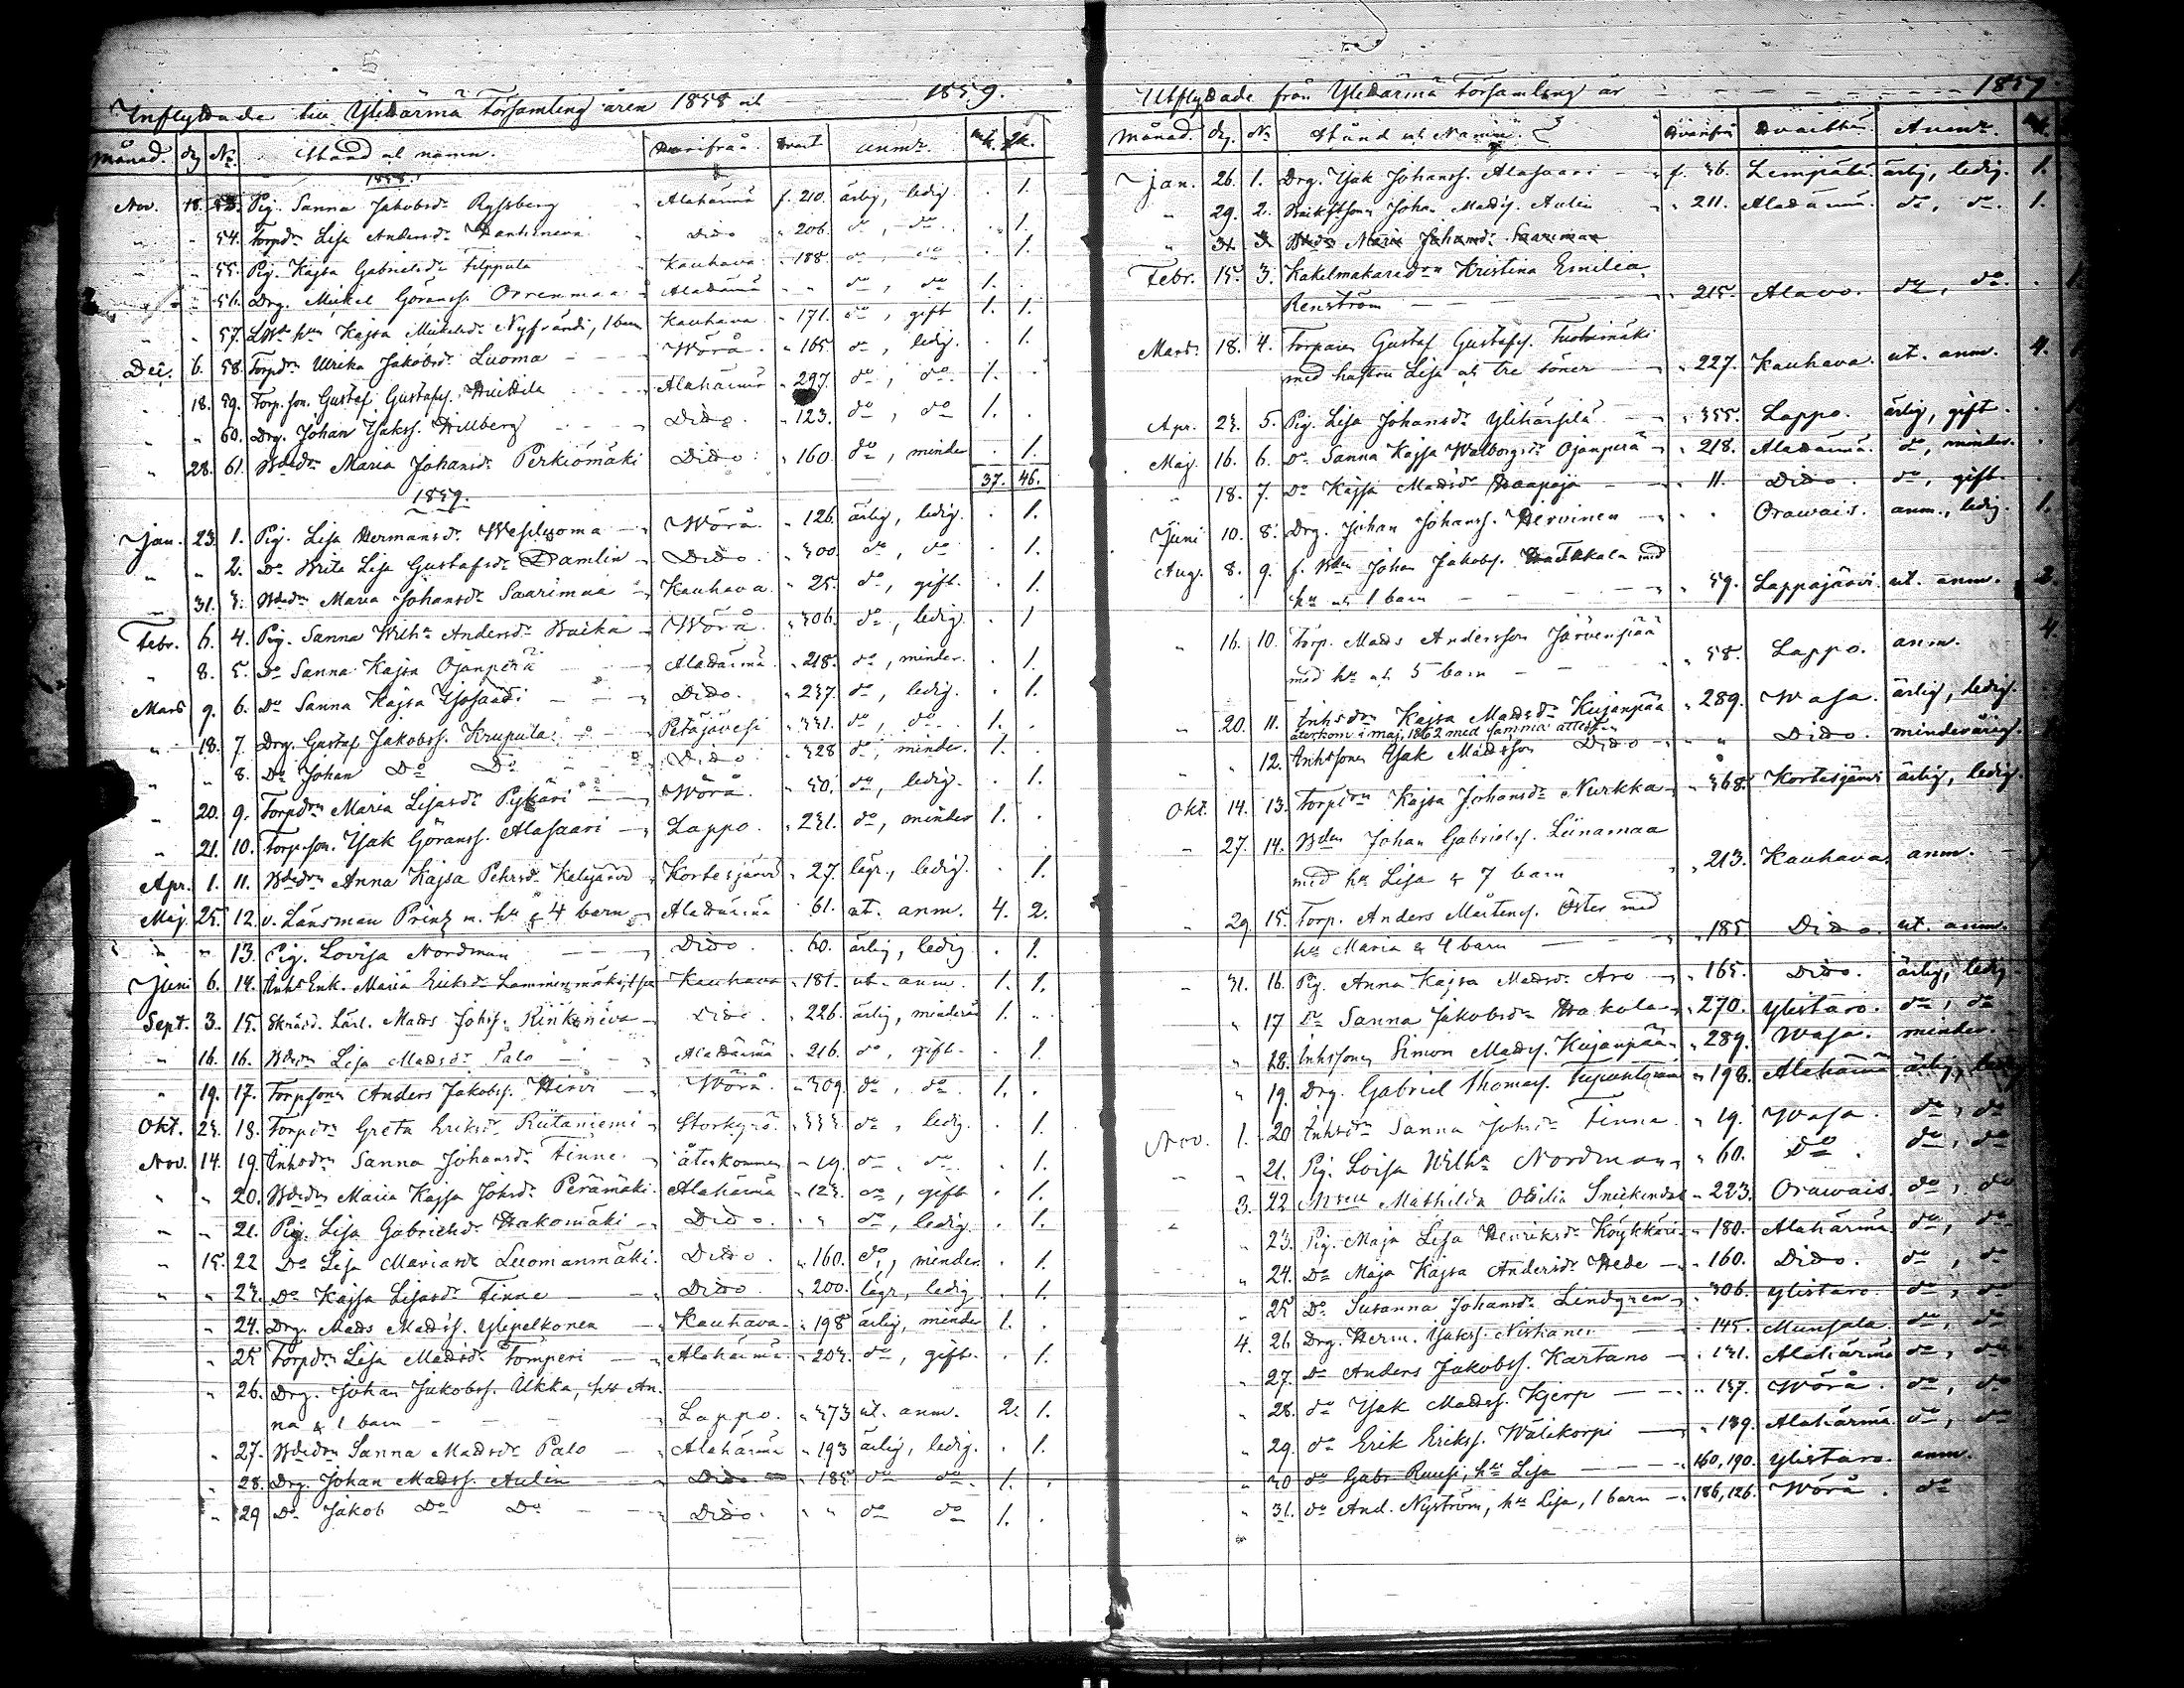 Inflyttade till Ylihärmä församling åren 1858 och 1859.
Månad. dg No. Stånd och namn. Hvarifrån. hvart anmr. mk. qk.
1858.
Nov. 18. 53. Pig. Sanna Jakobsdr Ryssberg Alahärmä f. 210. ärlig, ledig . 1.
" " 54. Torpdr Lisa Andersdr Dido " 206. do, do . 1.
" " 55. Pig. Kajsa Gabrielsdr Filppula Kauhava " 188. do, do . 1.
" " 56. Drg. Mickel Göranss. Orrenmaa Alahärmä " " do, do 1. .
" " 57. Kajsa Mickelsdr Nyfrändi, 1 barn Kauhava " 171. do, gift 1. 1.
Dec. 6. 58. Torpdr Ulrika Jakobsdr Luoma Wörå " 165. do, ledig. . 1.
" 18. 59. Torp. son. Gustaf Gustafss. Huittila Alahärmä " 297. do, do 1. .
" " 60. Drg. Johan Isakss. Hillberg Dido " 123. do, do 1. .
" 28. 61. Bdedr Maria Johansdr Perkiömäki Dido " 160. do, minder . 1.
37. 46.
1859.
Jan. 23. 1. Pig. Lisa Hermansdr Wesiluoma Wörå " 126. ärlig, ledig. . 1.
" " 2. Do Brita Lisa Gustafsdr Damlin Dido " 300. do, do . 1.
" 31. 3. Bdedr Maria Johansdr Saarimaa Kauhava " 25. do, gift. . 1.
Febr. 6. 4. Pig. Sanna Wilha Andersdr Wörå " 306. do, ledig. . 1
" 8. 5. Do Sanna Kajsa Ojanperä Alahärmä " 218. do, minder. . 1.
Mars 9. 6. Do Sanna Kajsa Isosaari Dido. " 237. do, ledig. . 1.
" 18. 7. Drg. Gustaf Jakobss. Krupula Petäjävesi " 331. do, do. 1. .
" " 8. Do Johan Do Do Dido " 328 do, minder. 1. .
" 20. 9. Torpdr Maria Lisasdr Pykäri Wörå " 30. do, ledig. . 1.
" 21. 10. Torp.son. Isak Göranss. Alasaari Lappo. " 231. do, minder 1. .
Apr. 1. 11. Bdedr Anna Kajsa Pehrsdr Kortesjärvi " 27. lägr., ledig. . 1.
Maj 25. 12. v. Länsman Prinz m. hu & 4 barn Alahärmä 61. ut. anm. 4. 2.
" " 13. Pig. Lovisa Nordman Dido. " 60. ärlig, ledig . 1.
Juni 6. 14. Inhs Enk. Maria Eriksdr Lamminmäki, 1 son Kauhava " 181. ut. anm. 1. 1.
Sept. 3. 15. Skräd. Lärl. Mads Johss. Rinkineva Dido. " 226. ärlig, minderå 1. .
" 16. 16. Bdedr Lisa Madsdr Palo Alahärmä " 216. do, gift. . 1.
" 19. 17. Torpson Anders Jakobss. Hirvi Wörå. " 309. do, do. 1. .
Okt. 23. 18. Torpdr Greta Eriksdr Riitaniemi Storkyrö. " 333. do, ledig. . 1.
Nov. 14. 19. Inhsdr Sanna Johansdr Finne. återkommen " 19. do, do. . 1.
" " 20. Bdedr Maria Kajsa Johsdr Perämäki. Alahärmä " 123. do, gift . 1.
" " 21. Pig. Lisa Gabrielsdr Hakomäki Dido. " " do, ledig. . 1.
" 15. 22 Do Lisa Mariasdr Luomanmäki. Dido. " 160. do, minder . 1.
" " 23. Do Kajsa Lisasdr Finne Dido. " 200. lägr, ledig . 1.
" 24. Drg. Mads Madss. Ylipelkonen Kauhava. " 198 ärlig, minder 1. .
" 25 Torpdr Lisa Madsdr Tömperi Alahärmä. " 203. do, gift. . 1.
" 26. Drg. Johan Jakobss. Ukka, hu An.
na & 1 barn Lappo. " 373 ut. anm. 2. 1.
" 27. Bdedr Sanna Madsdr Palo Alahärmä " 193 ärlig, ledig. . 1.
" 28. Drg. Johan Madss. Aulin Dido " 185 do do. 1. .
" 29 Do Jakob Do Do Dido. " " do do 1. .
Utflyttade från Ylihärmä församling år 1859
Månad. dg. No Stånd och Namn. Hvarifrån Hvarthän. Anmr. mk.
Jan. 26. 1. Drg. Isak Johanss. Alasaari f. 36. Lempälä. ärlig, ledig. 1.
" 29. 2. Johan Madss. Aulin " 211. Alahärmä. do, do. 1.
" 31 3 Bdedr Maria Johansdr Saarimaa
Febr. 15. 3. Kakelmakaredr Kristina Emilia
Renström " 215. Alavo. do, do.
Mars. 18. 4. Torparen Gustaf Gustafss. Tuotimäki
med hustru Lisa och tre söner " 227. Kauhava. ut. anm. 4.
Apr. 23. 5. Pig. Lisa Johansdr Ylihärsilä " 355. Lappo. ärlig, gift.
Maj. 16. 6. Do Sanna Kajsa Walborgsdr Ojanperä " 218. Alahärmä. do, minder.
" 18. 7. Do Kajsa Madsdr Haapoja " 11. Dido. do, gift.
Juni 10. 8. Drg. Johan Johanss. Hervinen " Orawais. anm., ledig. 1.
Aug. 8. 9. f. Bden Johan Jakobss. med
hu och 1 barn " 59. Lappajärvi. ut. anm. 2.
" 16. 10. Torp. Mads Andersson Järvenpää
med hu och 5 barn " 58. Lappo. anm. 4.
" 20. 11. Inhsdr Kajsa Madsdr Kujanpää " 289. Wasa. ärlig, ledig.
återkom i maj 1862 med samma attest
" " 12. Inhsson Isak Madsson Dido " " Dido. minderårig.
Okt. 14. 13. Torpdr Kajsa Johansdr Nurkka " 368. Kortesjärvi ärlig, ledig.
" 27. 14. Bden Johan Gabrielss. Liinamaa
med hu Lisa & 7 barn " 213. Kauhava. anm.
" 29 15. Torp. Anders Mårtenss. Öster med
hu Maria & 4 barn " 185 Dido. ut. anm.
" 31. 16. Pig. Anna Kajsa Madsdr Aro " 165. Dido. ärlig, ledig
" 17 Do Sanna Jakobsdr Hakola " 270. Ylistaro. do, do
" 18. Inhsson Simon Madss. Kujanpää " 289. Wasa. minder.
" 19. Drg. Gabriel Thomass. " 198. Alahärmä ärlig, ledig
Nov. 1. 20 Inhsdr Sanna Johsdr Finne. " 19. Wasa. do, do
" 21. Pig. Lovisa Wilha Nordman " 60. Do. do, do
3. 22 Mathilda Otilia " 223. Orawais. do, do
" 23. Pig. Maja Lisa Henriksdr Köykkäri " 180. Alahärmä. do, do
" 24. Do Maja Kajsa Andersdr Hede " 160. Dido. do, do
" 25 Do Susanna Johansdr Lindgren " 306. Ylistaro. do, do
4. 26 Drg. Herm. Isakss. Niskanen " 145. Munsala. do, do
" 27. Do Anders Jakobss. Kartano " 131. Alahärmä do, do
" 28. do Isak Madss. Kjerp " 137. Wörå. do, do
" 29. do Erik Erikss. Wälikorpi " 139. Alahärmä do, do
" 30 do Gabr Ruusi, hu Lisa " 160, 190. Ylistaro. anm.
" 31. do And. Nyström, hu Lisa, 1 barn " 186, 126. Wörå. do